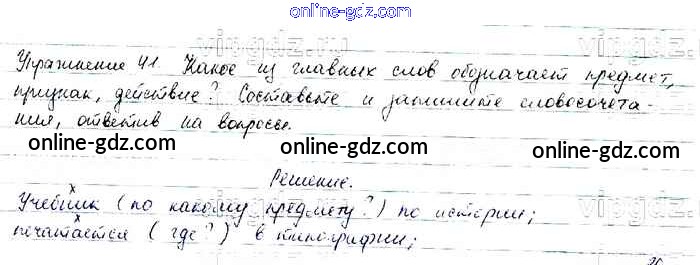 online-gdz.com
vipgdz.ru
Упражнение 41 Какое из главных слов обозначает предмет,
признак, действие? Составьте и запишите словосочета-
ния, ответив на вопросы.
online-gdz.com online-gdz.com online-gdz.com
Решение.
Учебник (по какому предмету?) по истории;
печатается (где?) в типографии;
vipgdz